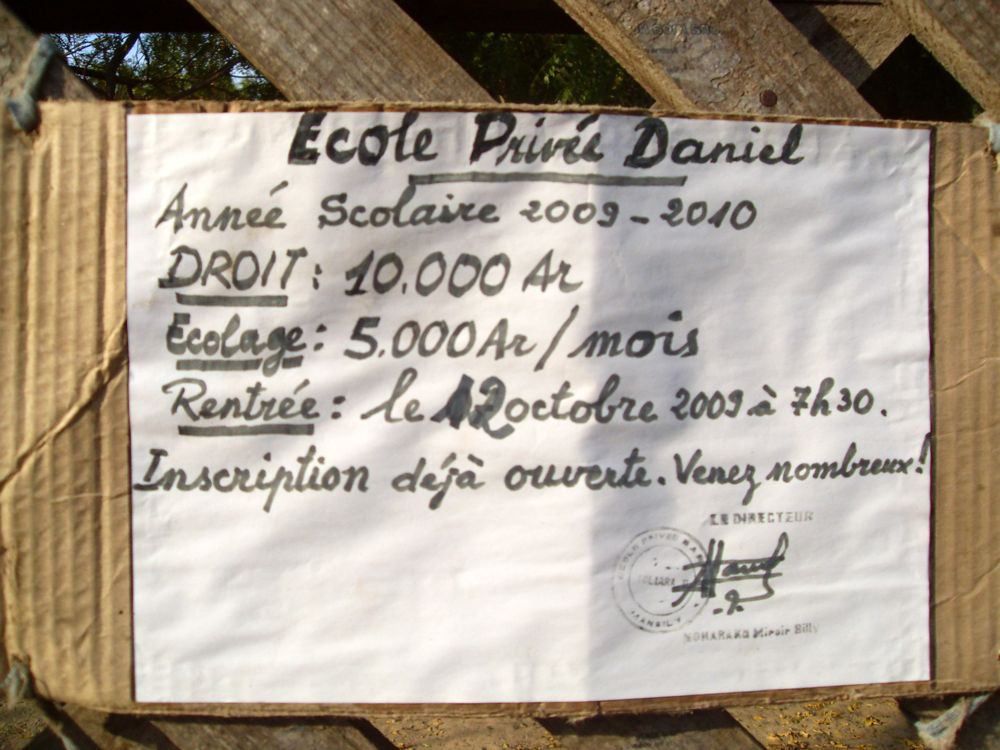 Ecole Privée Daniel
Année Scolaire 2009-2010
DROIT: 10.000 Ar
Ecolage: 5.000 Ar/mois
Rentrée: le 12 octobre 2009 à 7h30.
Inscription déjà ouverte. Venez nombreux!
LE DIRECTEUR
Miroir Billy